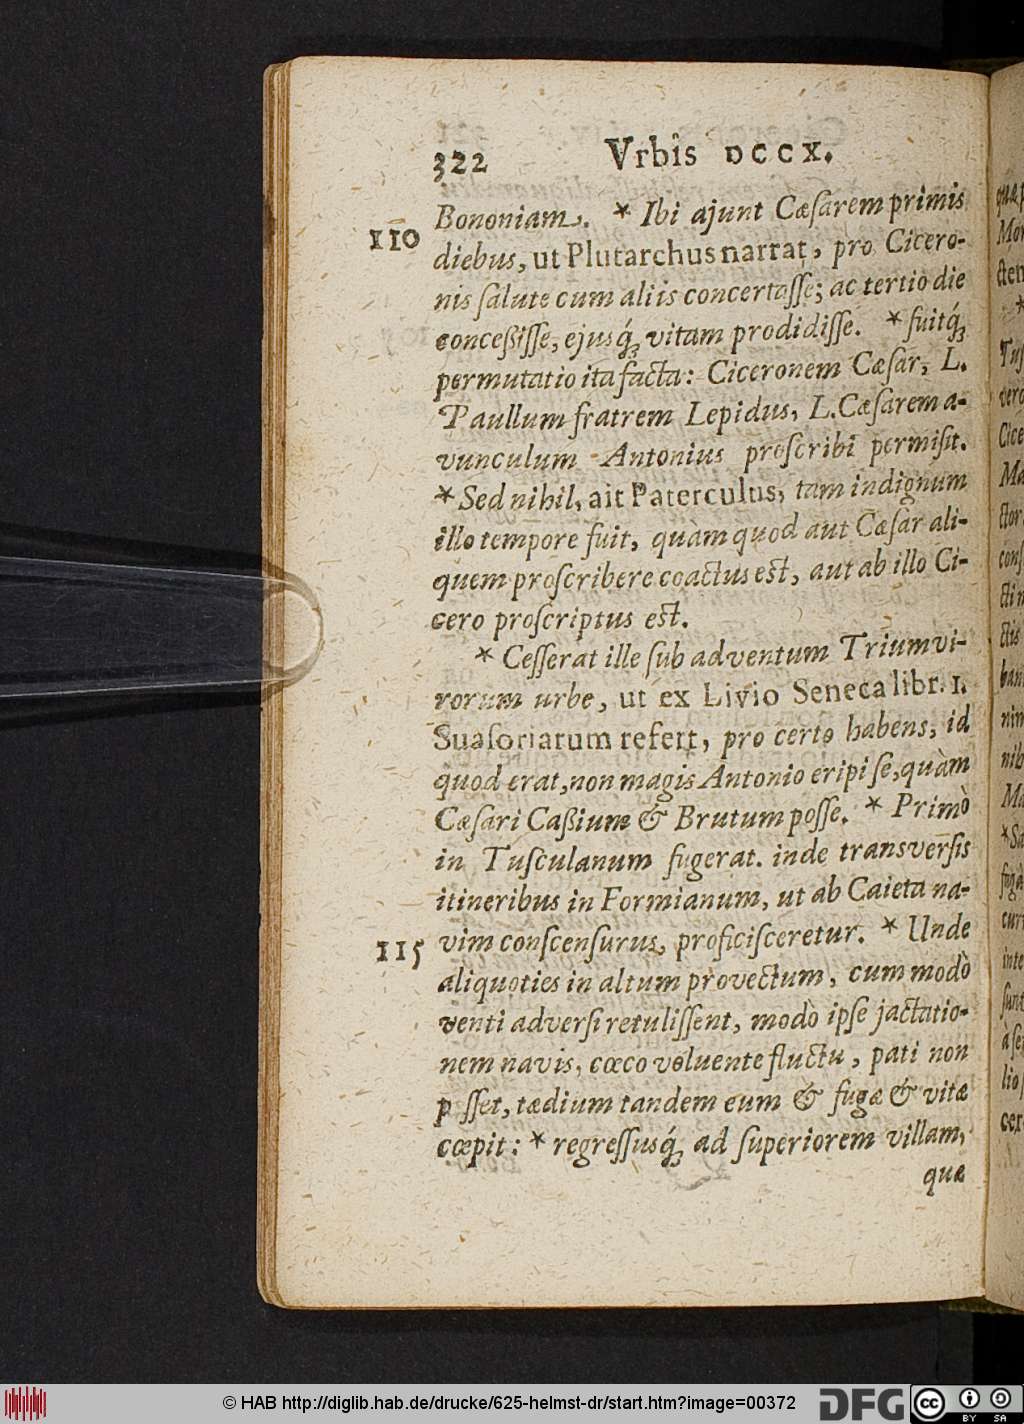 322 Vrbis DCCX.
Bononiam. * Ibi ajunt Cæſarem primis
110
diebus, ut Plutarchus narrat, pro Cicero-
nis ſalute cum aliis concertaſſe; ac tertio die
conceßiſſe, ejusq́; vitam prodidiſſe. * fuitq́;
permutatio ita facta: Ciceronem Cæſar, L.
Paullum fratrem Lepidus, L. Cæſarem a-
vunculum Antonius proſcribi permiſit.
* Sed nihil, ait Paterculus, tam indignum
illo tempore fuit, quàm quod aut Cæſar ali-
quem proſcribere coactus eſt, aut ab illo Ci-
cero proſcriptus eſt.
* Ceſſerat ille ſub adventum Triumvi-
rorum urbe, ut ex Livio Seneca libr. 1.
Suaſoriarum refert, pro certo habens, id
quod erat, non magis Antonio eripi ſe, quàm
Cæſari Caßium & Brutum poſſe. * Primò
in Tuſculanum fugerat. inde transverſis
itineribus in Formianum, ut ab Caieta na-
115 vim conſcenſurus, proficiſceretur. * Unde
aliquoties in altum provectum, cum modò
venti adverſi retuliſſent, modò ipſe jactatio-
nem navis, cœco voluente fluctu, pati non
p ſſet, tædium tandem eum & fugæ & vitæ
cœpit: * regreſſusq́; ad ſuperiorem villam,
quæ
© HAB http://diglib.hab.de/drucke/625-helmst-dr/start.htm?image=00372
DFG
cc
BY SA